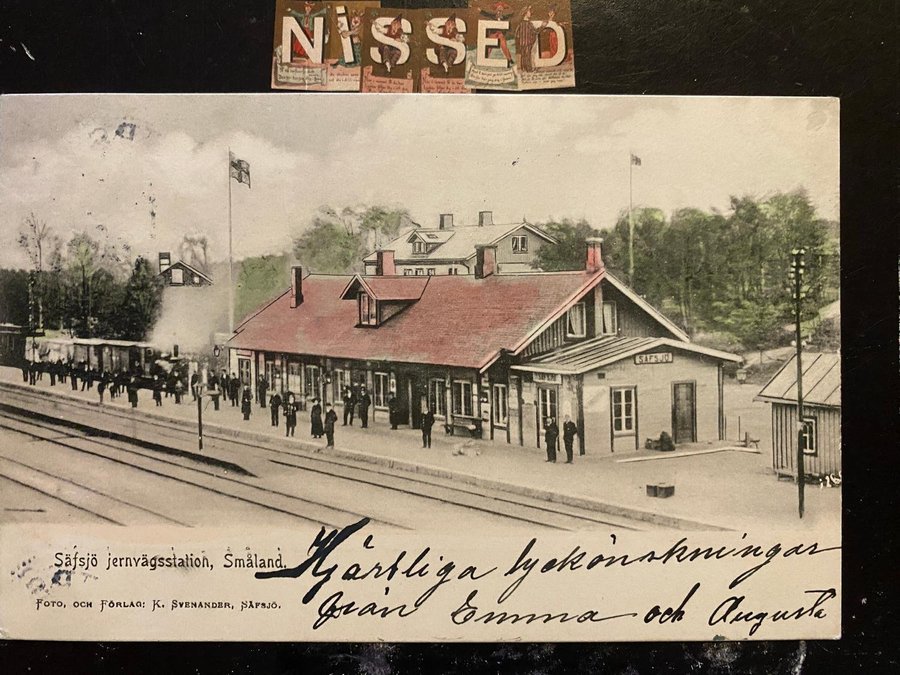 NiSSED
SÄFSJÖ
Säfsjö jernvägsstation, Småland.
Foto, och Förlag: K. Svenander, Säfsjö.
Hjärtliga lyckönskningar
från Emma och Augusta